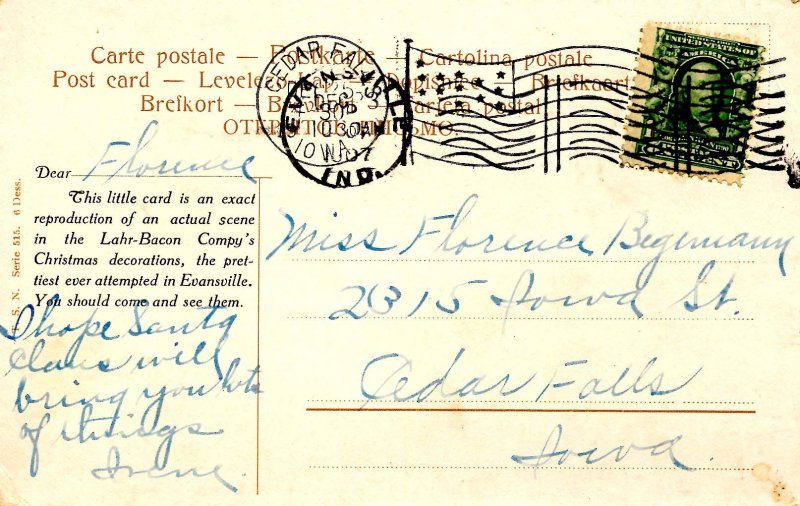 Carte postale — Postkarte — Cartolina postale
Post card — Levelező-Lap — Dopisnice — Briefkaart
Brefkort — postal
CEDAR FALLS
IOWA
EVANSVILLE
DEC
1030AM
1907
IND.
UNITED STATES OF
AMERICA
Dear Florence
This little card is an exact
reproduction of an actual scene
in the Lahr-Bacon Compy's
Christmas decorations, the pret-
tiest ever attempted in Evansville.
You should come and see them.
I hope Santa
Claus will
bring you lots
of things
Irene.
S. N. Serie 515. 6 Dess.
Miss Florence Begemann
2315 Iowa St.
Cedar Falls
Iowa.